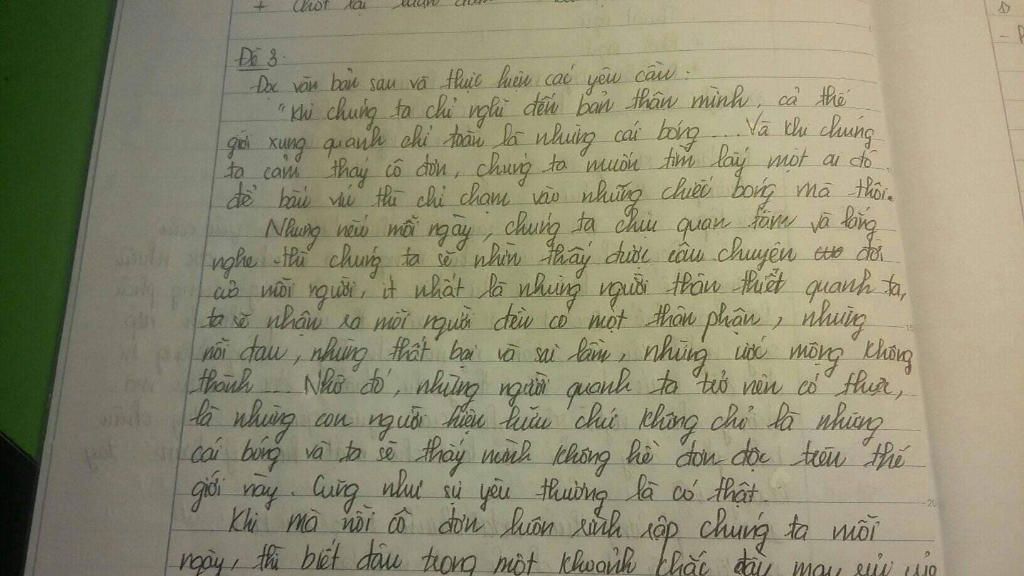 + Chốt lại
Đề 3:
Đọc văn bản sau và thực hiện các yêu cầu:
"Khi chúng ta chỉ nghĩ đến bản thân mình, cả thế
giới xung quanh chỉ toàn là những cái bóng... Và khi chúng
ta cảm thấy cô đơn, chúng ta muốn tìm lấy một ai đó
để bấu víu thì chỉ chạm vào những chiếc bóng mà thôi.
Nhưng nếu mỗi ngày, chúng ta chịu quan tâm và lắng
nghe thì chúng ta sẽ nhìn thấy được câu chuyện đời
của mỗi người, ít nhất là những người thân thiết quanh ta,
ta sẽ nhận ra mỗi người đều có một thân phận, những
nỗi đau, những thất bại và sai lầm, những ước mộng không
thành... Nhờ đó, những người quanh ta trở nên có thực,
là những con người hiện hữu chứ không chỉ là những
cái bóng và ta sẽ thấy mình không hề đơn độc trên thế
giới này. Cũng như sự yêu thương là có thật.
Khi mà nỗi cô đơn luôn rình rập chúng ta mỗi
ngày, thì biết đâu trong một khoảnh khắc đầy may rủi